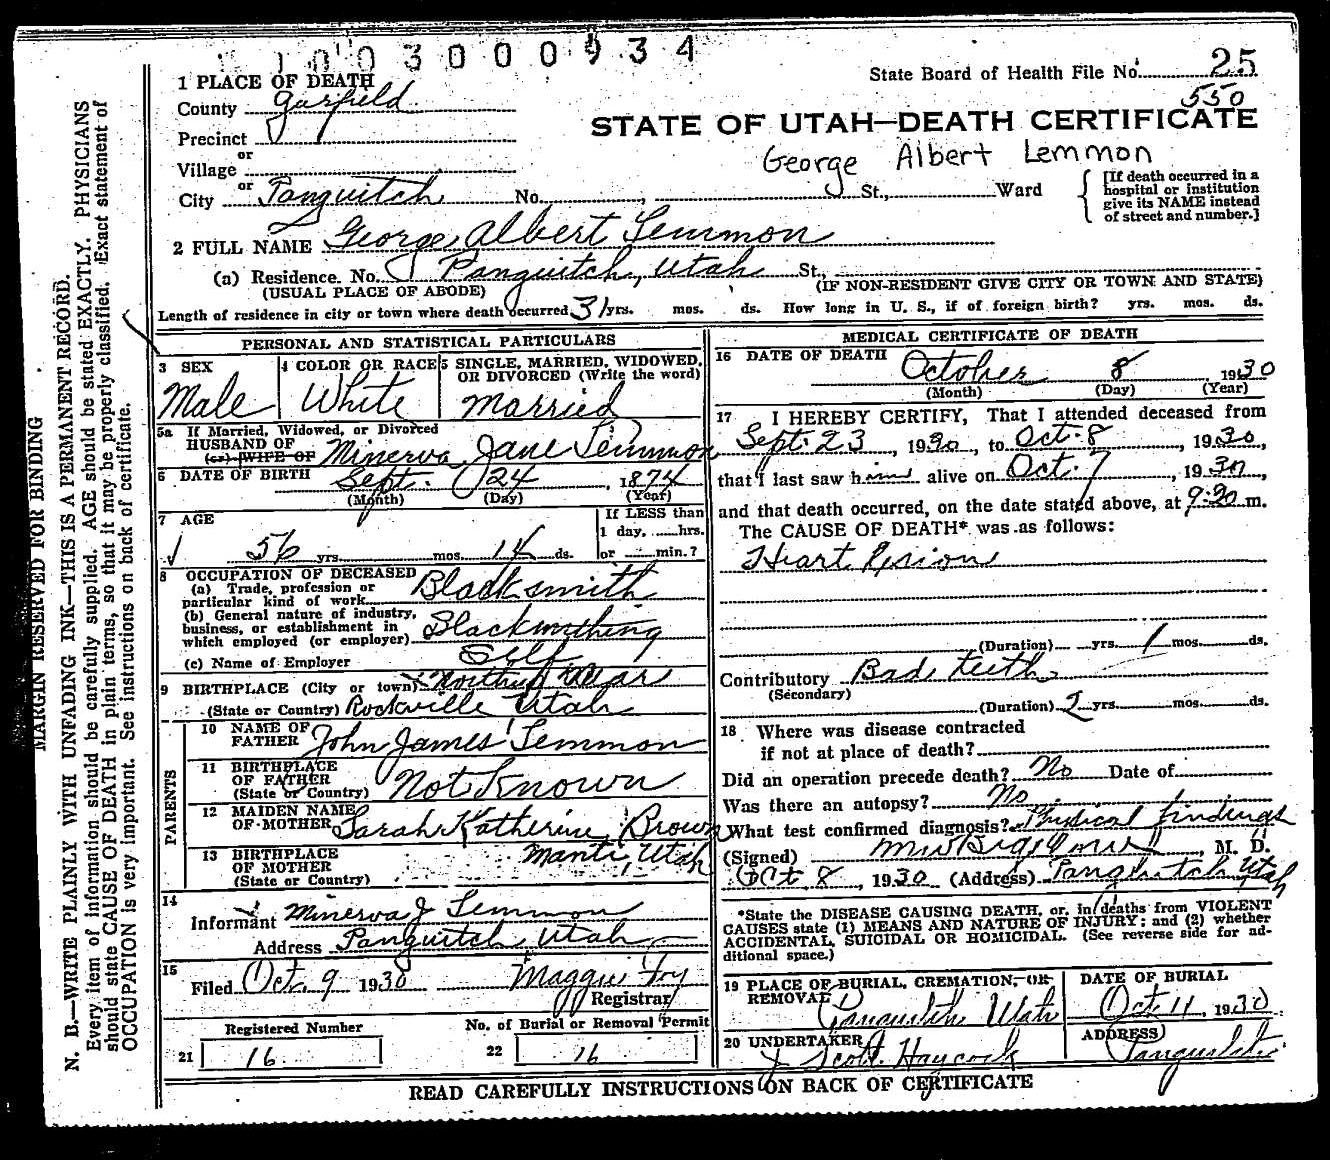 1003000934
State Board of Health File No. 25
550
1 PLACE OF DEATH
County Garfield
STATE OF UTAH—DEATH CERTIFICATE
Precinct
or
George Albert Lemmon
Village
or
City Panguitch No. , St., Ward
[If death occurred in a
hospital or institution
give its NAME instead
of street and number.]
2 FULL NAME George Albert Lemmon
(a) Residence. No. Panguitch, Utah St.,
(USUAL PLACE OF ABODE) (IF NON-RESIDENT GIVE CITY OR TOWN AND STATE)
Length of residence in city or town where death occurred 31 yrs. mos. ds. How long in U. S., if of foreign birth? yrs. mos. ds.
PERSONAL AND STATISTICAL PARTICULARS
3 SEX
Male
4 COLOR OR RACE
White
5 SINGLE, MARRIED, WIDOWED,
OR DIVORCED (Write the word)
Married
5a If Married, Widowed, or Divorced
HUSBAND OF
(or) WIFE OF Minerva Jane Lemmon
6 DATE OF BIRTH Sept. 24, 1874
(Month) (Day) (Year)
7 AGE
56 yrs. mos. 14 ds.
If LESS than
1 day, hrs.
or min.?
8 OCCUPATION OF DECEASED
(a) Trade, profession or
particular kind of work Blacksmith
(b) General nature of industry,
business, or establishment in
which employed (or employer) Blacksmithing
(c) Name of Employer Self
9 BIRTHPLACE (City or town) Northrup near
(State or Country) Rockville Utah
PARENTS
10 NAME OF
FATHER John James Lemmon
11 BIRTHPLACE
OF FATHER
(State or Country) Not Known
12 MAIDEN NAME
OF MOTHER Sarah Katherine Brown
13 BIRTHPLACE
OF MOTHER
(State or Country) Manti, Utah
14
Informant Minerva J Lemmon
Address Panguitch Utah
15
Filed Oct. 9 1930 Maggie Foy
Registrar
Registered Number
21 16
No. of Burial or Removal Permit
22 16
MEDICAL CERTIFICATE OF DEATH
16 DATE OF DEATH
October 8, 1930
(Month) (Day) (Year)
17 I HEREBY CERTIFY, That I attended deceased from
Sept. 23, 1930, to Oct. 8, 1930,
that I last saw him alive on Oct. 7, 1930,
and that death occurred, on the date stated above, at 9:30 m.
The CAUSE OF DEATH* was as follows:
Heart Lesion
(Duration) yrs. 1 mos. ds.
Contributory Bad teeth
(Secondary)
(Duration) 2 yrs. mos. ds.
18 Where was disease contracted
if not at place of death?
Did an operation precede death? No Date of
Was there an autopsy? No
What test confirmed diagnosis? Physical findings
(Signed) , M. D.
Oct 8, 1930 (Address) Panguitch Utah
*State the DISEASE CAUSING DEATH, or, in deaths from VIOLENT
CAUSES state (1) MEANS AND NATURE OF INJURY; and (2) whether
ACCIDENTAL, SUICIDAL OR HOMICIDAL. (See reverse side for ad-
ditional space.)
19 PLACE OF BURIAL, CREMATION, OR
REMOVAL
Panguitch Utah
DATE OF BURIAL
Oct. 11, 1930
20 UNDERTAKER
J Scott Haycock
ADDRESS
Panguitch
READ CAREFULLY INSTRUCTIONS ON BACK OF CERTIFICATE
MARGIN RESERVED FOR BINDING
N. B.—WRITE PLAINLY WITH UNFADING INK—THIS IS A PERMANENT RECORD.
Every item of information should be carefully supplied. AGE should be stated EXACTLY. PHYSICIANS
should state CAUSE OF DEATH in plain terms, so that it may be properly classified. Exact statement of
OCCUPATION is very important. See instructions on back of certificate.